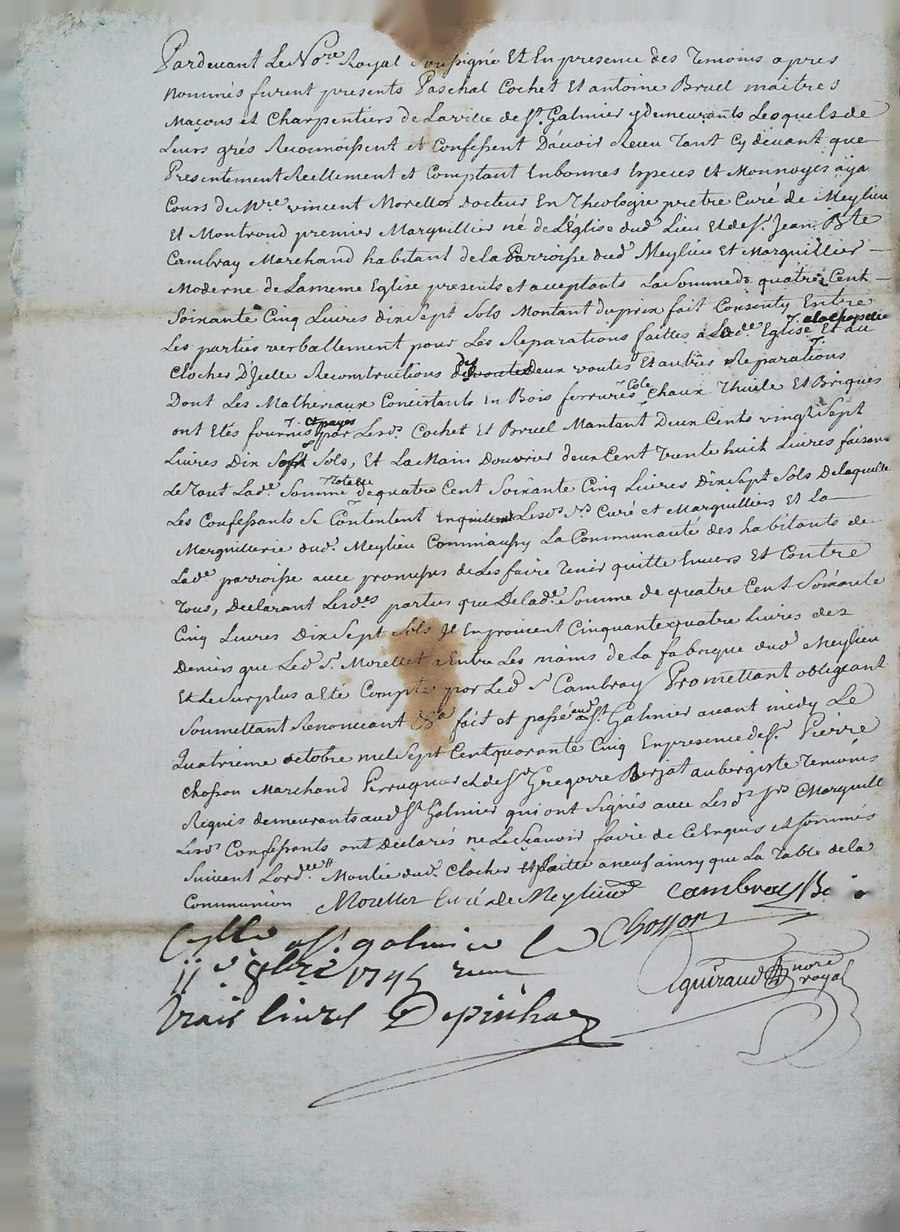 Pardevant Le No.re Royal soussigné Et En presence des Temoins apres
nommés furent presents Paschal Cochet Et antoine Bruel maitres
Maçons et Charpentiers de La ville de St. Galmier y demeurants Lesquels de
Leurs grés Reconnoissent et Confessent D'avoir Receu Tant Cy devant que
Presentement Reellement et Comptant En bonnes Especes et Monnoyes aÿa
Cours de Mre. vincent Morellet docteur En Theologie pretre Curé de Meylieu
Et Montrond premier Marguillier né de L'Eglise dud. Lieu Et de Sr. Jean Bte
Cambray Marchand habitant de la Parroisse dud. Meylieu Et Marguillier
Moderne de La meme Eglise presents et acceptants La Somme de quatre Cent
Soixante Cinq Livres dix Sept Sols Montant du prix fait Consenty Entre
Les parties verballement pour Les Reparations faittes a Lade. Eglise a la chapelle Et au
Clocher D'Jcelle Reconstructions de deux voutes Et autres Reparations
Dont Les Matheriaux Concistants En Bois ferrures Chaux Thuile Et Briques
ont Etés fournis Et payes par Lesd. Cochet Et Bruel Mantant Deux Cents vingt Sept
Livres Dix Sept Sols, Et La Main Douvrier deux Cent Trente huit Livres faisant
Le Tout Lade. Somme Totalle de quatre Cent Soixante Cinq Livres Dix Sept Sols De laquelle
Les Confessants Se Contentent En quittent Lesds. Srs. Curé et Marguilliers Et La
Marguillerie dud. Meylieu Comm'aussy La Communauté des habitants de
Lade. parroisse avec promesses de Les faire Tenir quitte Envers Et Contre
Tous, Declarant Lesdes. parties que De lade. Somme de quatre Cent Soixante
Cinq Livres Dix Sept Sols Jl En provient Cinquante quatre Livres des
Deniers que Led. Sr. Morellet a Entre Les mains de La fabrique dud. Meylieu
Et Le Surplus a Eté Compté par Led. Sr Cambray Promettant obligeant
Soumettant Renonceant &a fait et passé aud. St. Galmier avant midy Le
Quatrieme octobre mil Sept Cent quarante Cinq En presence de Sr. Pierre
Chosson Marchand Perruquier et de Sr. Gregoire Berjat aubergiste Temoins
Requis demeurants aud. St. Galmier qui ont Signés avec Lesds. Srs Marguill
Lesds. Confessants ont declarés ne Le Scavoir faire de Ce Enquis et Sommés
Suivant Lordce. Montée dud. Clocher Et faitte a neuf ainsy que La Table de la
Communion Morellet Curé de Meylieu Cambray
a St. galmier le Chosson
8bre 1745
guiraud nore royal
trois livres Depinhac